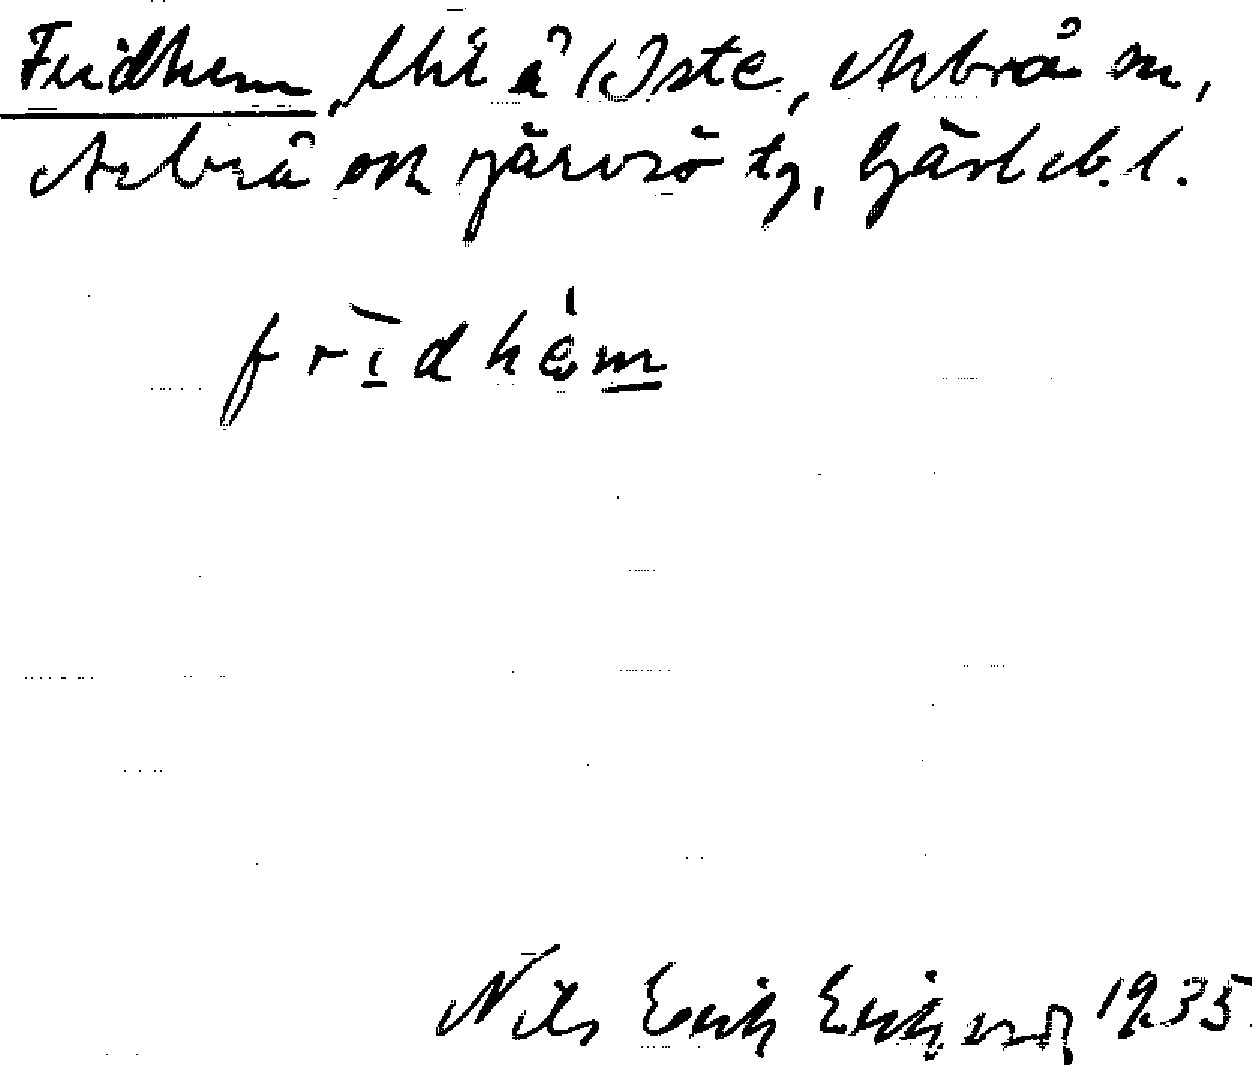 Fridhem, lht å (Iste, Arbrå sn,
Arbrå och Järvsö tg, Gävleb. l.
frīdhè̩m
Nils Erik Eriksson 1935